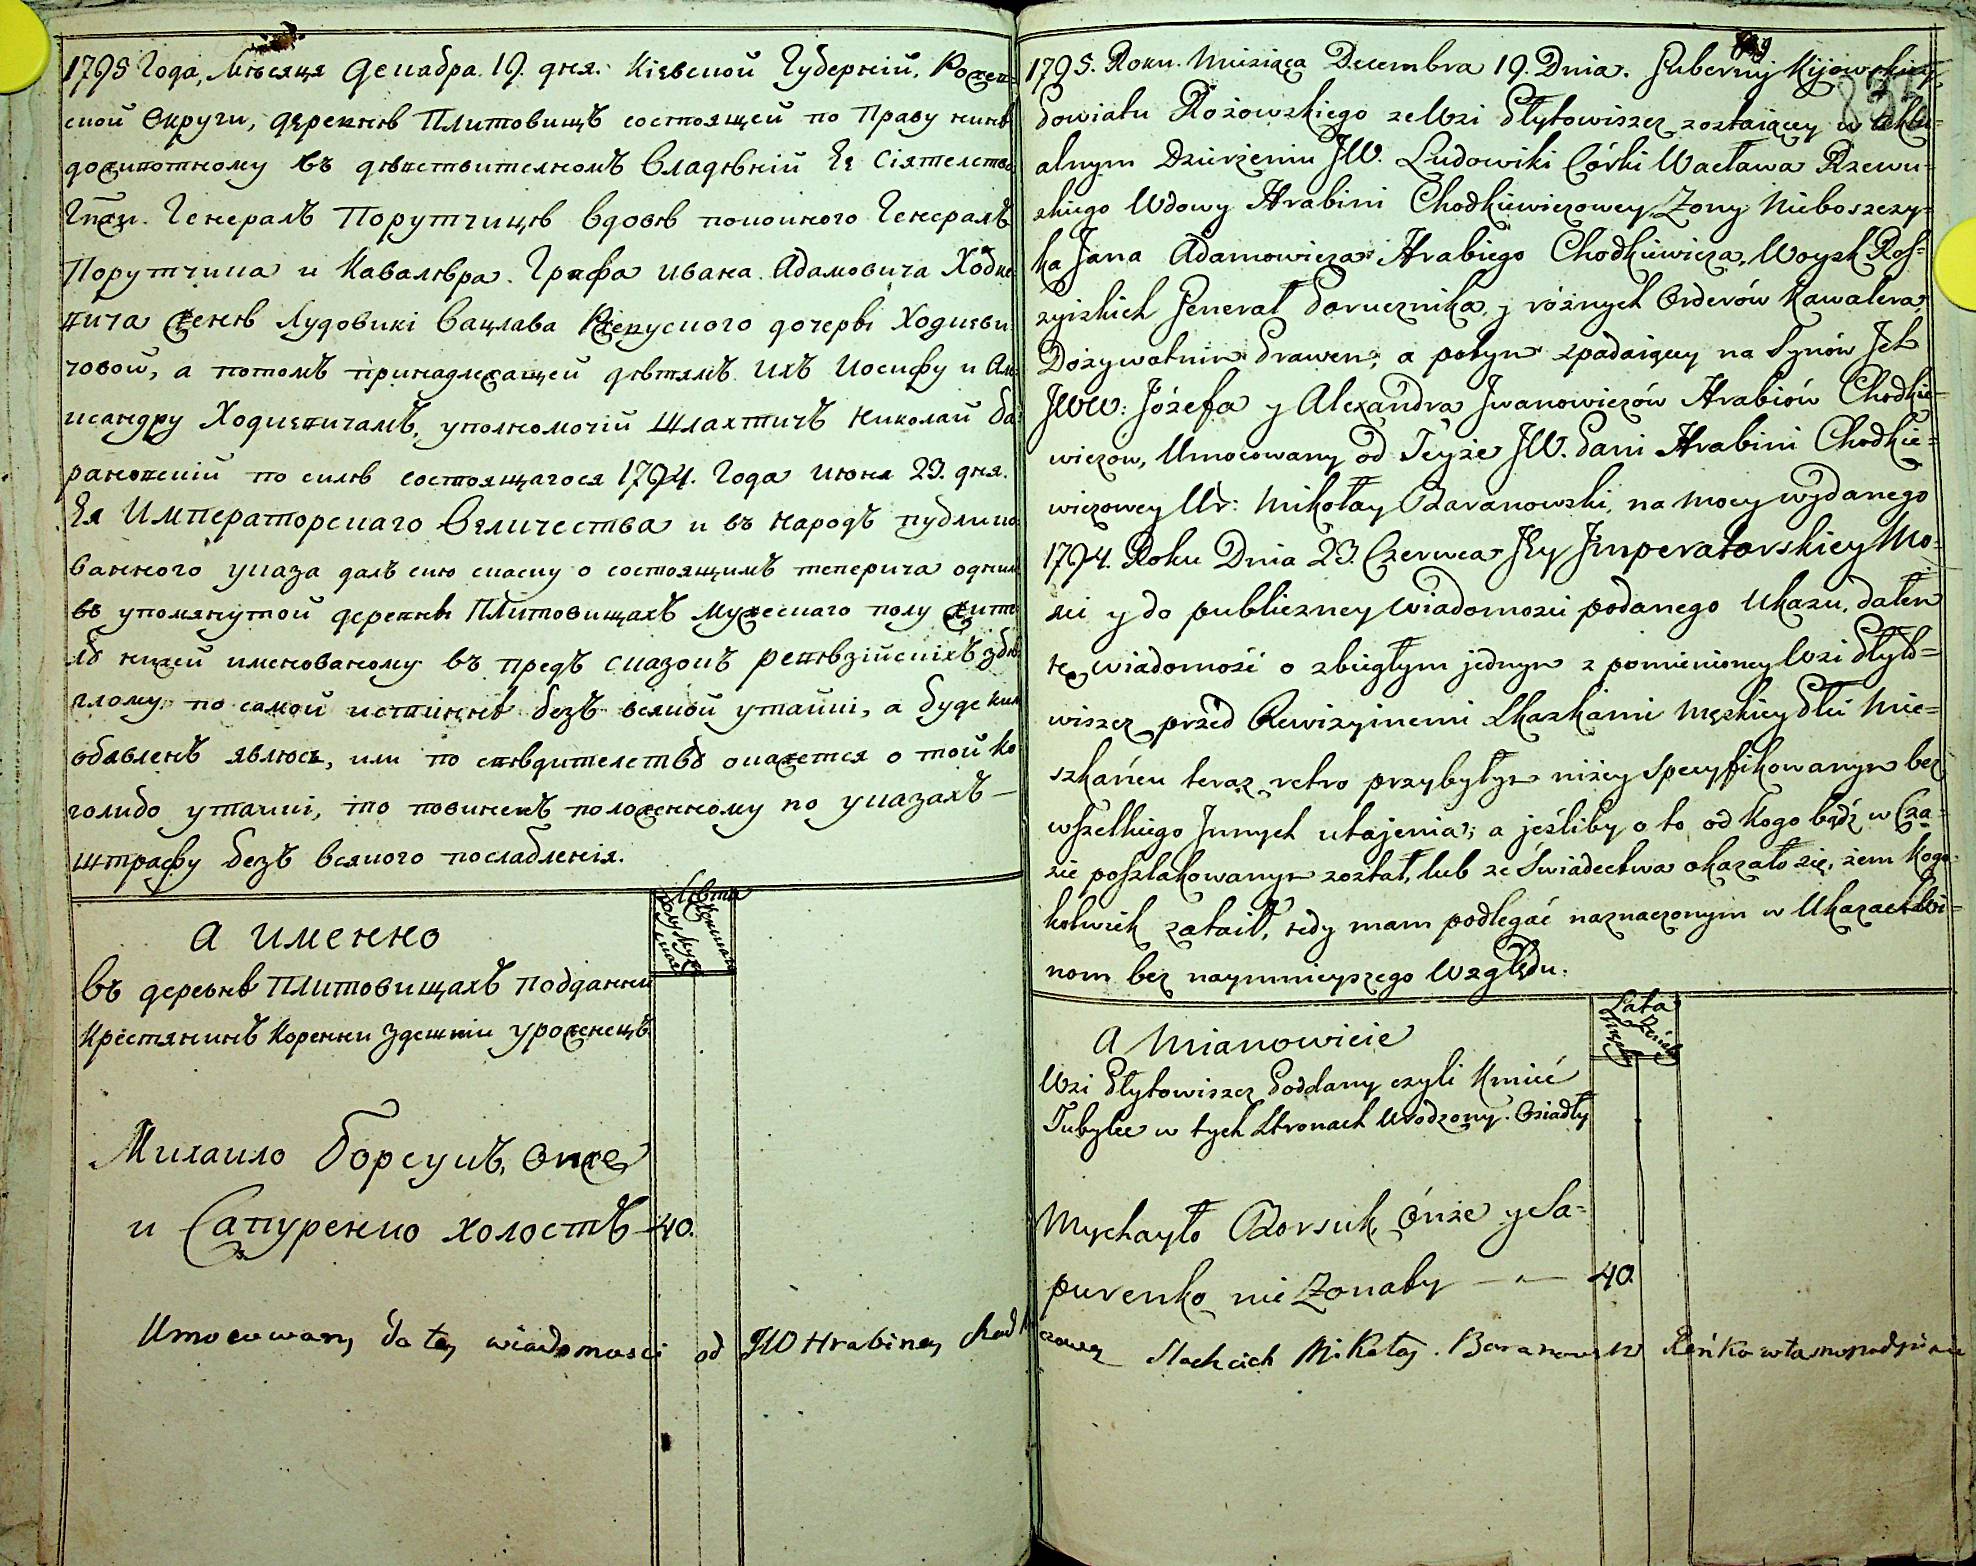 1795 Года, Мѣсяця Декабра 19. дня. Кіевской Губерніи, Рожев-
ской Округи, деревнѣ Плитовищъ состоящей по Праву
доживотному въ дѣйствителномъ владѣніи Ея Сіятелства
Генералъ Порутчицѣ вдовѣ покойного Генералъ
Порутчика и Кавалѣра. Графа Ивана Адамовича Ходке
вича женѣ Лудовикі Вацлава Ржевуского дочерѣ Ходкеви
човой, а потомъ принадлежащей дѣтямъ ихъ Иосифу и Але
ксандру Ходкевичамъ, уполномочій Шлахтичъ Николай Ба
рановскій по силѣ состоящагося 1794. Года июня 23. дня.
Ея Императорскаго Величества и въ народъ публико
ванного указа далъ сию скаску о состоящимъ теперича одним
въ упомянутой деревнѣ Плитовищахъ мужескаго полу жите
лѣ нижей именованому въ предъ сказокъ ревѣзійскіхъ збѣ
глому по самой истиннѣ безъ всякой утайкі, а буде ким
обявленъ явлюсь, или по свѣдителствѣ окажется о той ко
голибо утайкі, то повиненъ положенному по указахъ —
штрафу безъ всякого послабленія.
Лѣта
А именно
въ деревнѣ Плитовищахъ подданни
Крестянинъ Коренни здешніи уроженецъ
Михаило Борсукъ, онже
и Сапуренко холостъ 40.
Umocowany do tey wiadomosci od JW Hrabiney Chodk
1795. Roku. Miesiąca Decembra 19. Dnia. Gubernij Kijowskiey
Powiatu Rożowskiego ze Wsi Płytowiszcz zostaiącey w
alnym Dzierżeniu JW. Ludowiki Córki Wacława Rzewu-
skiego Wdowy Hrabini Chodkiewiczowey, Zony Nieboszczy-
ka Jana Adamowicza Hrabiego Chodkiewicza, Woysk Ros-
syiskich Generał Porucznika, y różnych Orderów Kawalera,
Dożywotnim Prawem, a potym spadaiącey na Synów Ich
JWW: Józefa y Alexandra Jwanowiczów Hrabiów Chodkie-
wiczow, Umocowany od Teyże JW. Pani Hrabini Chodkie-
wiczowey Ur: Mikołay Baranowski, na mocy wydanego
1794. Roku Dnia 23. Czerwca Jey Jmperatorskiey Mo-
sci y do publiczney wiadomosci podanego Ukazu, dałem
tę wiadomość o zbiegłym jednym z pomienioney Wsi Płyto-
wiszcz przed Rewizyinemi Skazkami męskiey Płci Mie-
szkańcu teraz retro przybyłym niżey specyfikowanym bez
wszelkiego Jnnych utajenia; a jeśliby o to od kogo bądź w Cza-
sie poszlakowanym został, lub ze świadectwa okazało się, żem kogo-
kolwiek zataił, tedy mam podlegać naznaczonym w Ukazach Wi-
nom bez naymnieyszego Względu.
Lata
A Mianowicie
Wsi Płytowiszcz Poddany czyli Kmieć
Tubylec w tych Stronach Urodzony. Osiadły
Mychayło Borsuk, ónże y Sa-
purenko nie Zonaty — „ — 40
czowey Slachcich Mikołay. Baranowski Renko własno podpisuie